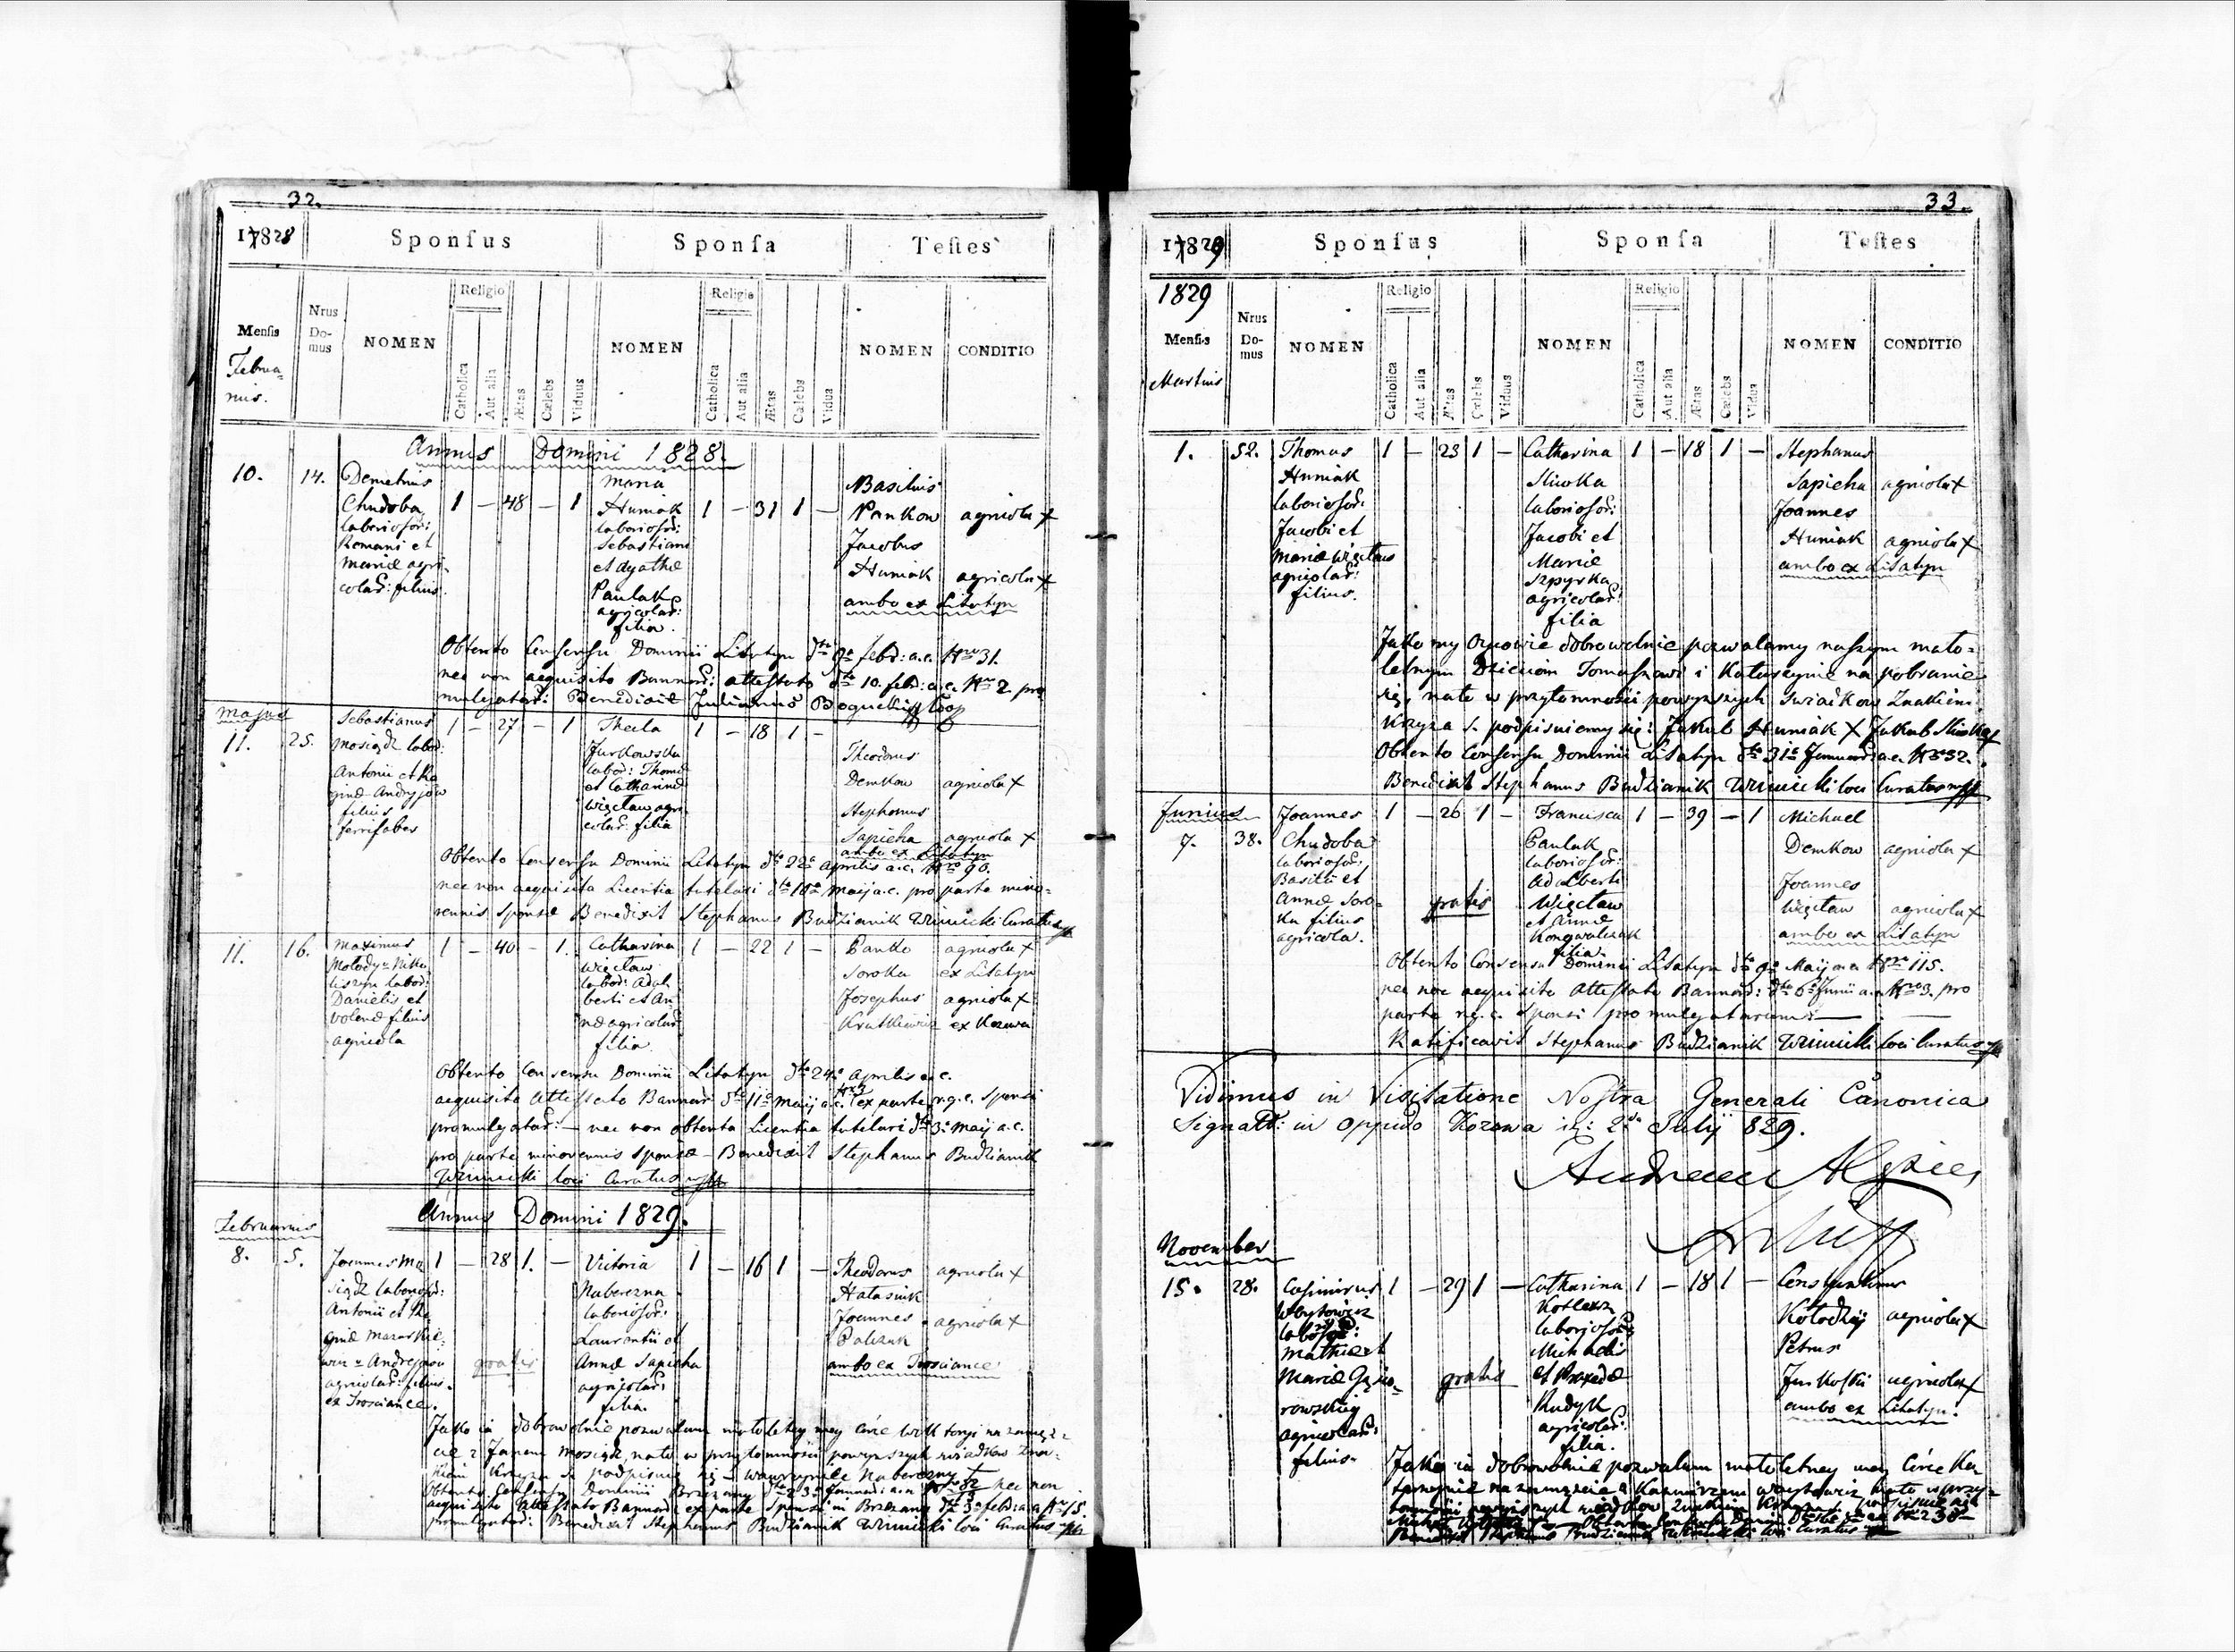 32.
17828
Sponsus
Sponsa
Testes
Mensis
Februa-
rius.
Nrus
Do-
mus
NOMEN
Religio
Catholica
Aut alia
Ætas
Cœlebs
Viduus
NOMEN
Religio
Catholica
Aut alia
Ætas
Cœlebs
Vidua
NOMEN
CONDITIO
Annus Domini 1828.
10. 14. Demetrius
Chudoba
laboriosor:
Romani et
Mariæ agri-
colar: filius.
1 — 48 — 1
Maria
Huniak
laboriosor:
Sebastiani
et Agathæ
Paulak
agricolar:
filia.
1 — 31 1 —
Basilius
Pankow agricola +
Jacobus
Huniak agricola +
ambo ex Litatyn
Obtento Consensu Dominii Litatyn dto febr: a.c. Nro 31.
nec non aequisito Bannor: attestato dto 10. febr: a.c. Nro 2. pro
mulgatar: Benedixit Julianus
Majus
11. 25. Sebastianus
Mosiądz labor:
Antonii et Re
ginæ Andryjow
filius
ferrifaber
1 — 27 — 1
Thecla
Jurkowska
labor: Thomæ
et Catharinæ
Więcław agri
colar: filia
1 — 18 1 —
Theodorus
Demkow agricola +
Stephanus
Sapieha agricola +
ambo ex Litatyn
Obtento Consensu Dominii Litatyn dto 22a Aprilis a.c. Nro 90.
nec non aequisita Licentia tutelari dto 10a Maij a.c. pro parte mino-
rennis Sponsæ Benedixit Stephanus Budzianik Winnicki Curatus
11. 16. Maximus
Mołody
labor:
Danielis et
filius
agricola
1 — 40 — 1.
Catharina
Więcław
labor: Adal
berti et An
næ agricolar:
filia.
1 — 22 1 —
Panko agricola +
Soroka ex Litatyn
Josephus agricola +
ex Kozowa
Obtento Consensu Dominii Litatyn dto 24a Aprilis a.c.
aequisito Attestato Bannor: dto 11a Maij a.c. Nro 3 ex parte r.g.c. Sponsi
promulgatar: — nec non obtenta Licentia tutelari dto 3a Maij a.c.
pro parte minorennis Sponsæ — Benedixit Stephanus Budzianik
Winnicki loci Curatus
Annus Domini 1829.
Februarius
8. 5. Joannes Mo
siądz laborios:
Antonii et Re
ginæ
Andryjow
agricolar: filius.
ex Trosciance.
1 — 28 1. —
gratis
Victoria
Naberezna
laboriosor:
Laurentii et
Annæ Sapieha
agricolar:
filia.
1 — 16 1 —
Theodorus agricola +
Hałasiuk
Joannes agricola +
Palczuk
ambo ex Trosciance
Jako ia dobrowolnie pozwalam małoletny mey Córce Wiktoryi na zamęż-
cie z Janem Mosiądz, nato w przytomności powyższych świadków Zna-
kiem Krzyża S. podpisuię się — Wawrzyniec Naberezny +
Obtento Consensu Dominii Brzezany dto 23a Januar: a.c. Nro 82 nec non
aequisito Attestato Bannor: ex parte Sponsi in Brzezany dto 3a febr: a.c. Nro 15.
promulgatar: Benedixit Stephanus Budzianik Winnicki loci Curatus
33.
17829
Sponsus
Sponsa
Testes
1829
Mensis
Martius
Nrus
Do-
mus
NOMEN
Religio
Catholica
Aut alia
Ætas
Cœlebs
Viduus
NOMEN
Religio
Catholica
Aut alia
Ætas
Cœlebs
Vidua
NOMEN
CONDITIO
1. 52. Thomas
Huniak
laboriosor:
Jacobi et
Mariæ Więcław
agricolar:
filius.
1 — 23 1 —
Catharina
Sliwka
laboriosor:
Jacobi et
Mariæ
Szpyrka
agricolar:
filia
1 — 18 1 —
Stephanus
Sapieha agricola +
Joannes
Huniak agricola +
ambo ex Litatyn
Jako my Oycowie dobrowolnie pozwalamy naszym mało-
letnym Dzieciom Tomaszowi i Katarzynie na pobranie
się, nato w przytomności powyższych świadków Znakiem
Krzyża S. podpisuiemy się: Jakub Huniak + Jakub Sliwka +
Obtento Consensu Dominii Litatyn dto 31a Januar: a.c. Nro 32.
Benedixit Stephanus Budzianik Winnicki loci Curatus
Junius
7. 38. Joannes
Chudoba
laboriosor:
Basilii et
Annæ Soro-
ka filius
agricola.
1 — 26 1 —
gratis
Francisca
Paulak
laboriosor:
Adalberti
Więcław
et Annæ
Kongwalczak
filia.
1 — 39 — 1
Michael
Demkow agricola +
Joannes
Więcław agricola +
ambo ex Litatyn
Obtento Consensu Dominii Litatyn dto 9a Maij a.c. Nro 115.
nec non aequisito Attestato Bannor: dto 6a Junii a.c. Nro 3. pro
parte r.g.c. Sponsi promulgatarum: —
Ratificavit Stephanus Budzianik Winnicki loci Curatus
Vidimus in Visitatione Nostra Generali Canonica
Signatt: in oppido Kozowa in: 2da Julij 829.
November
15. 28. Casimirus
Wbytowicz
labor:
Mathiæ et
Mariæ Gąsio-
rowskiej
agricolar:
filius.
1 — 29 1 —
gratis
Catharina
Kotlarz
laboriosor:
Michaelis
et Praxedæ
Rudyk
agricolar:
filia.
1 — 18 1 —
Constantinus
Kołodzij agricola +
Petrus
Jurkoski agricola +
ambo ex Litatyn.
Jako ia dobrowolnie pozwalam małoletney mey Córce Ka-
tarzynie na zamęzcie z Kazimierzem nato w przy-
tomności powyższych świadków Znakiem Krzyża S. podpisuie się
Obtento Consensu Nro 238
Benedixit Stephanus Budzianik Winnicki loci Curatus